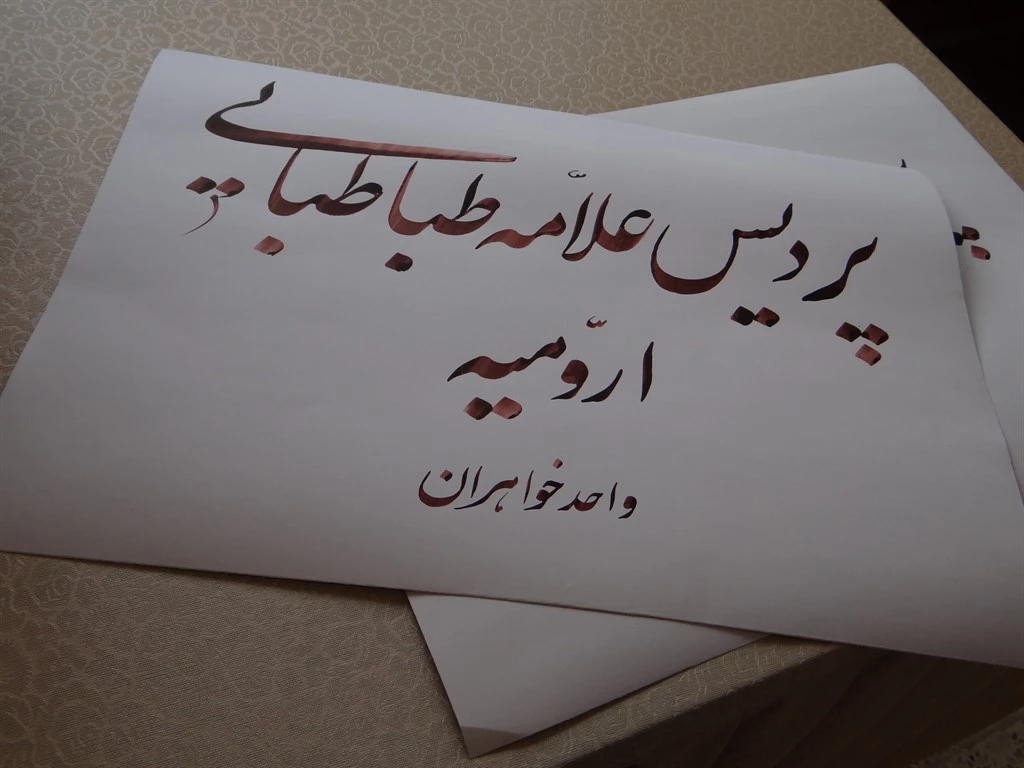 پردیس علّامه طباطبایی
ارّومیه
واحد خواهران